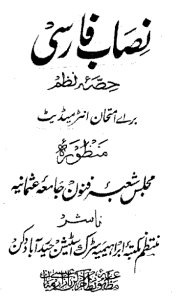 نصاب فارسی
حصۂ نظم
برائے امتحان انٹرمیڈیٹ
منظورہ
مجلس شعبۂ فنون جامعۂ عثمانیہ
ناشر
منتظم مکتبۂ ابراہیمیہ سٹرک اسٹیشن حیدرآباد دکن